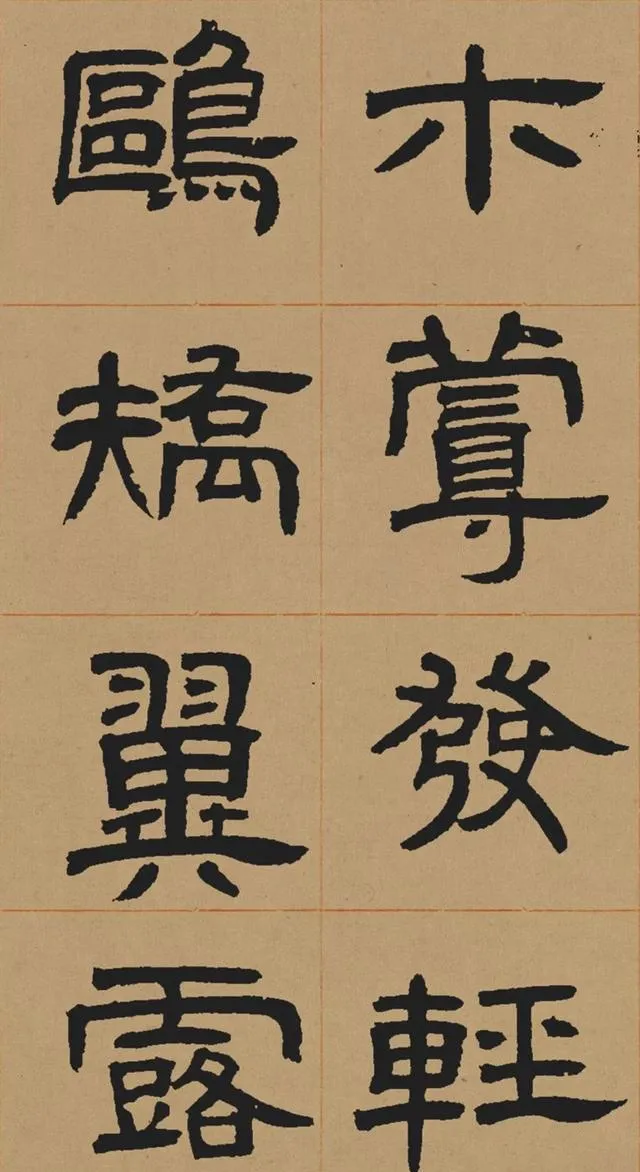 木蔓發輕
鷗矯翼露